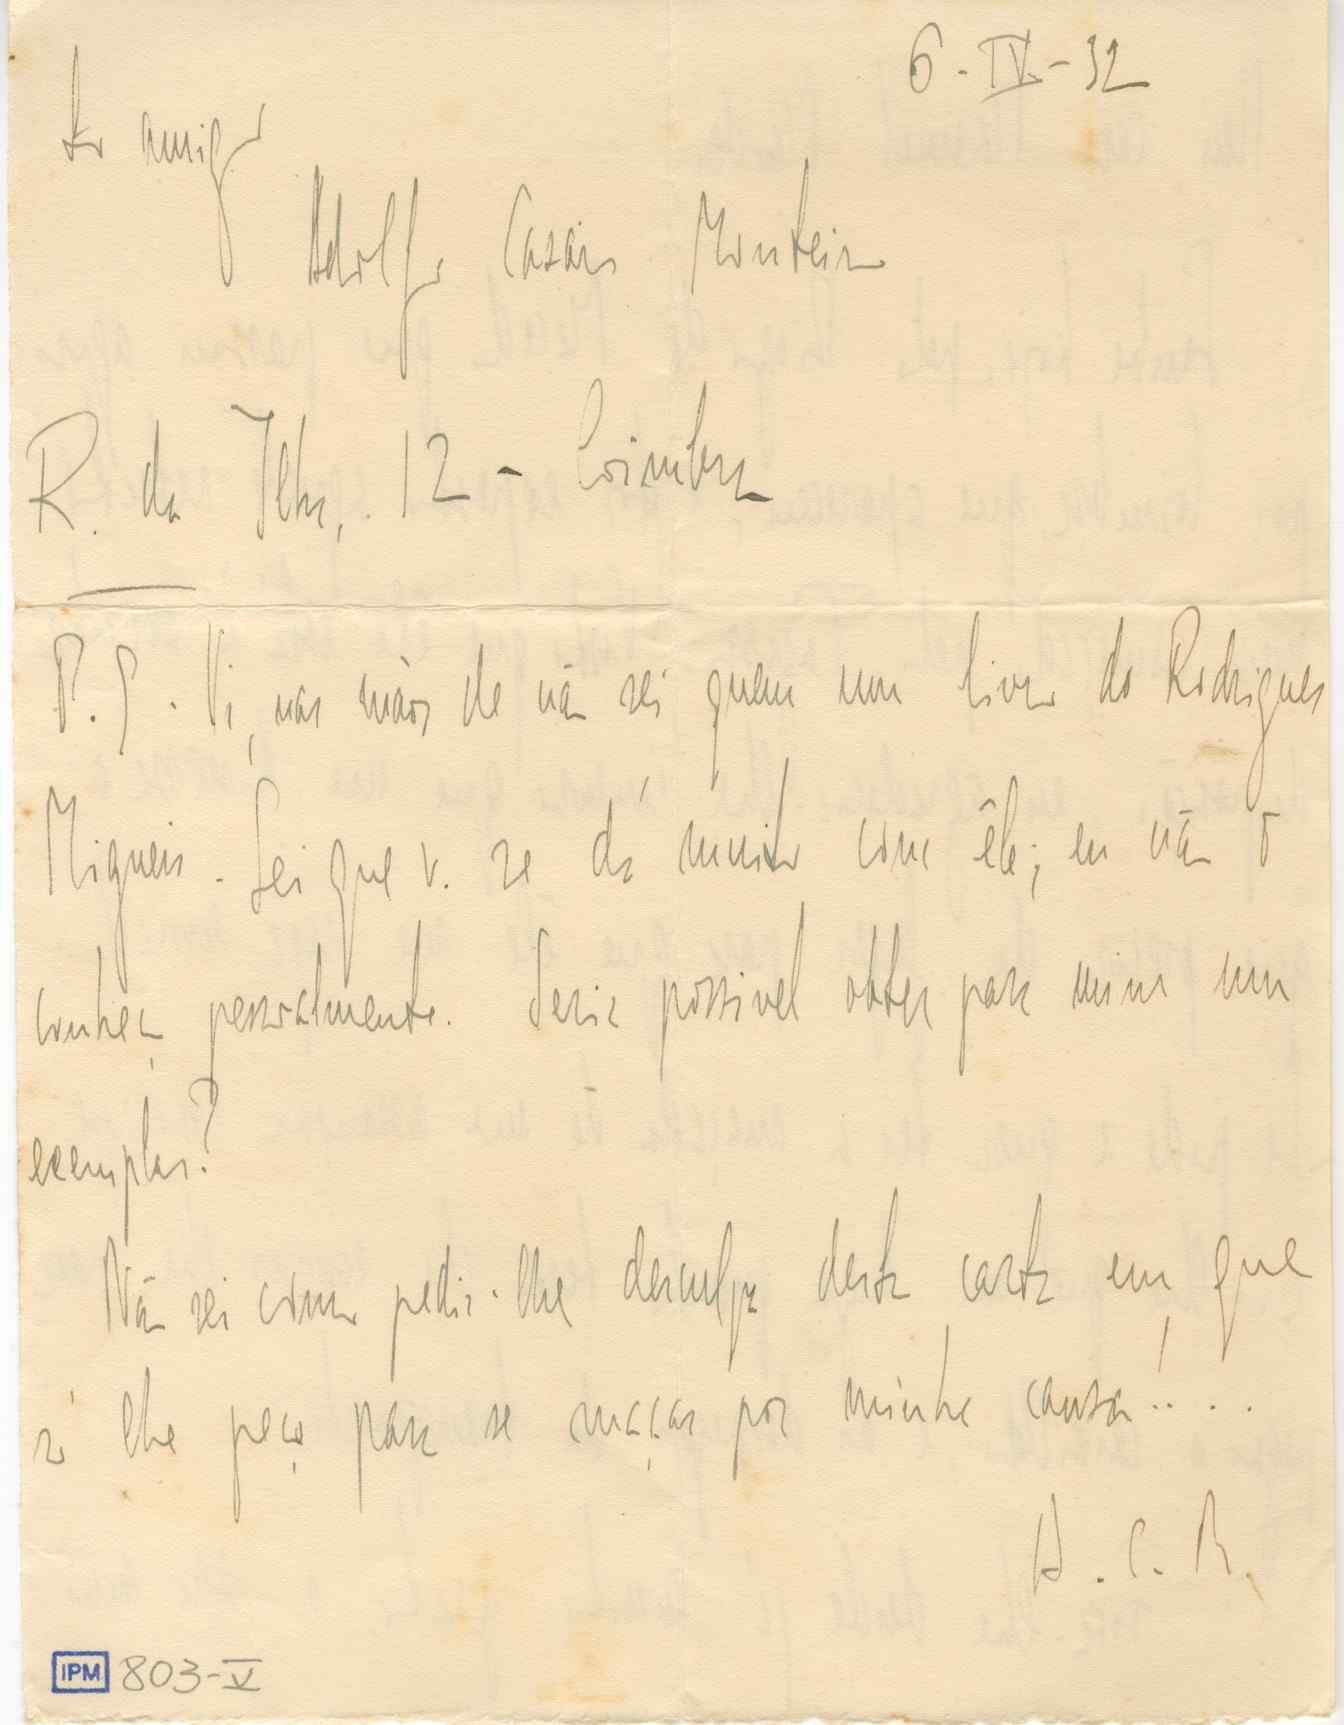 6-IV-32
do amigo
Adolfo Casais Monteiro
R. da Ilha, 12 - Coimbra
P.S. Vi, nas mãos de não sei quem um livro do Rodrigues
Migueis. Sei que v. se dá muito com êle; eu não o
conheço pessoalmente. Seria possivel obter para mim um
exemplar?
Não sei como pedir-lhe desculpa desta carta em que
só lhe peço para se maçar por minha causa!...
A. C. M.
IPM 803-V